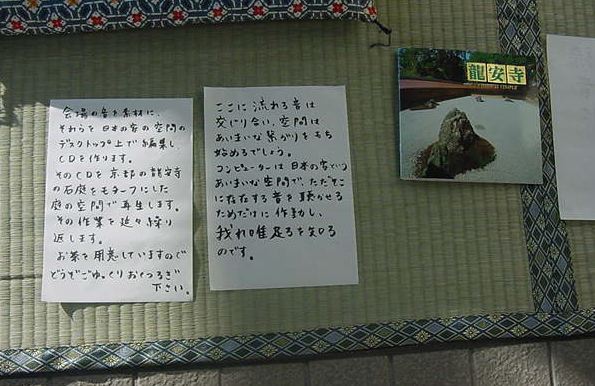 会場の音を素材に、
それらを日本の客の空間の
デスクトップ上で編集し
CDを作ります。
そのCDを京都の龍安寺
の石庭をモチーフにした
庭の空間で再生します。
その作業を延々繰り
返します。
お茶を用意していますので
どうぞごゆっくりおくつろぎ
下さい。
ここに流れる音は
交じり合い、空間は
あいまいな繋がりをもち
始めるでしょう。
コンピューターは日本の客という
あいまいな空間で、ただそこ
に存在する音を聴かせる
ためだけに作動し、
我れ唯足るを知る
のです。
龍安寺